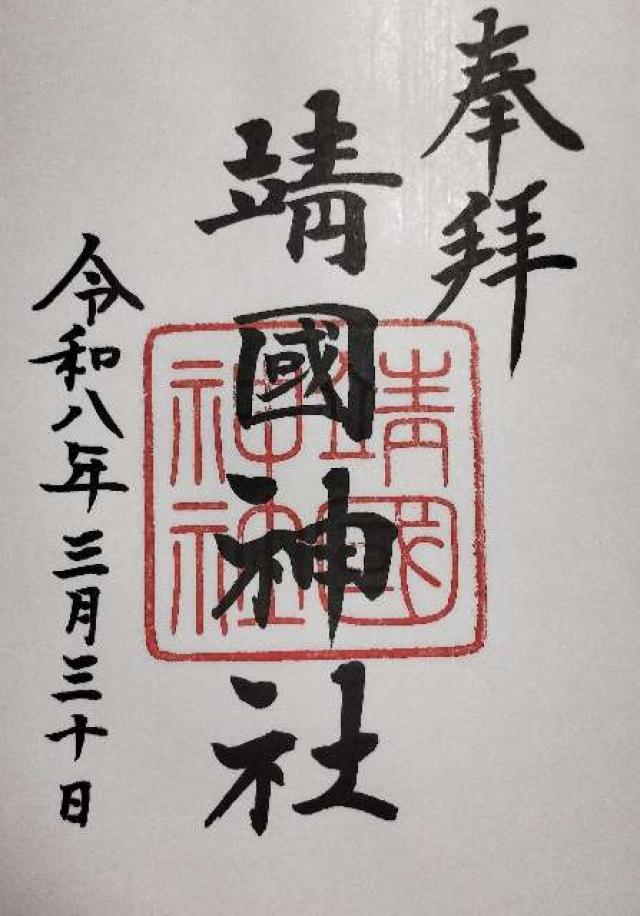 奉拝
靖國神社
靖國
神社
令和八年三月三十日